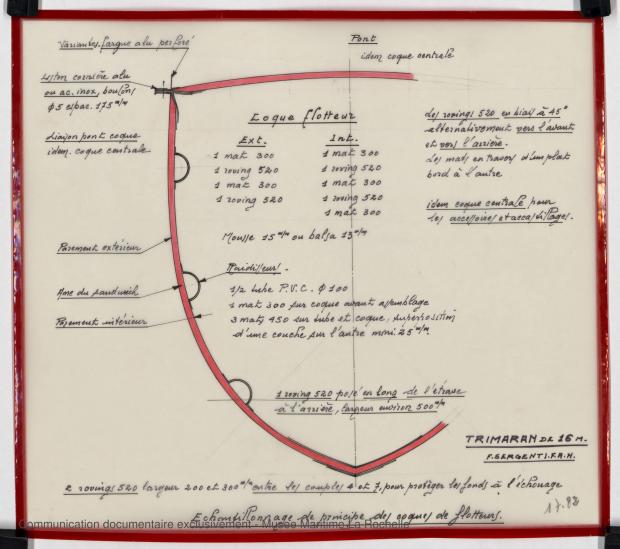 Variantes. fargue alu perforé
Liston cornière alu
ou ac. inox, boulons
ϕ5 espac. 175 m/m
Liaison pont coque
idem. coque centrale
Pont
idem coque centrale
Coque flotteur
Ext.
1 mat 300
1 roving 520
1 mat 300
1 roving 520
Int.
1 mat 300
1 roving 520
1 mat 300
1 roving 520
1 mat 300
Mousse 15 m/m ou balsa 13 m/m
Les rovings 520 en biais à 45°
alternativement vers l'avant
et vers l'arrière.
Les mats en travers d'un plat
bord à l'autre
idem coque centrale pour
les accessoires et accastillages.
Parement extérieur
Ame du sandwich
Parement intérieur
Raidisseur.
1/2 tube P.V.C. ϕ 100
1 mat 300 sur coque avant assemblage
3 mats 450 sur tube et coque, superposition
d'une couche sur l'autre mini. 25 m/m.
1 roving 520 posé en long de l'étrave
à l'arrière, largeur environ 500 m/m
TRIMARAN DE 16 M.
2 rovings 520 largeur 200 et 300 m/m entre les couples 4 et 7, pour protéger les fonds à l'échouage
Echantillonnage de principe des coques de flotteurs.
Communication documentaire exclusivement - Musée Maritime La Rochelle